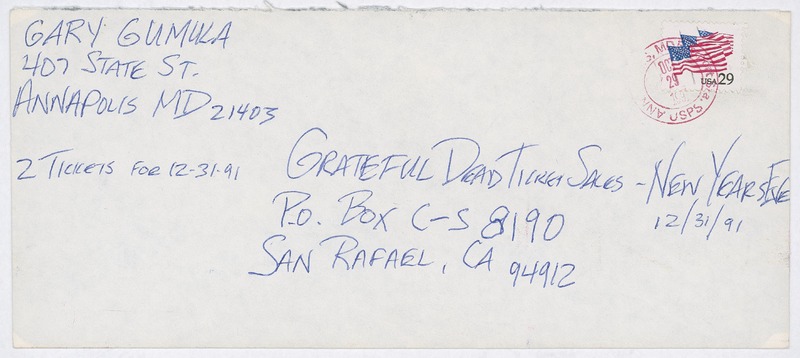 GARY GUMULA
407 STATE ST.
ANNAPOLIS MD 21403
2 TICKETS FOR 12-31-91
GRATEFUL DEAD TICKET SALES - NEW YEARS EVE
12/31/91
P.O. BOX C-S 8190
SAN RAFAEL, CA 94912
USA 29
USPS
29